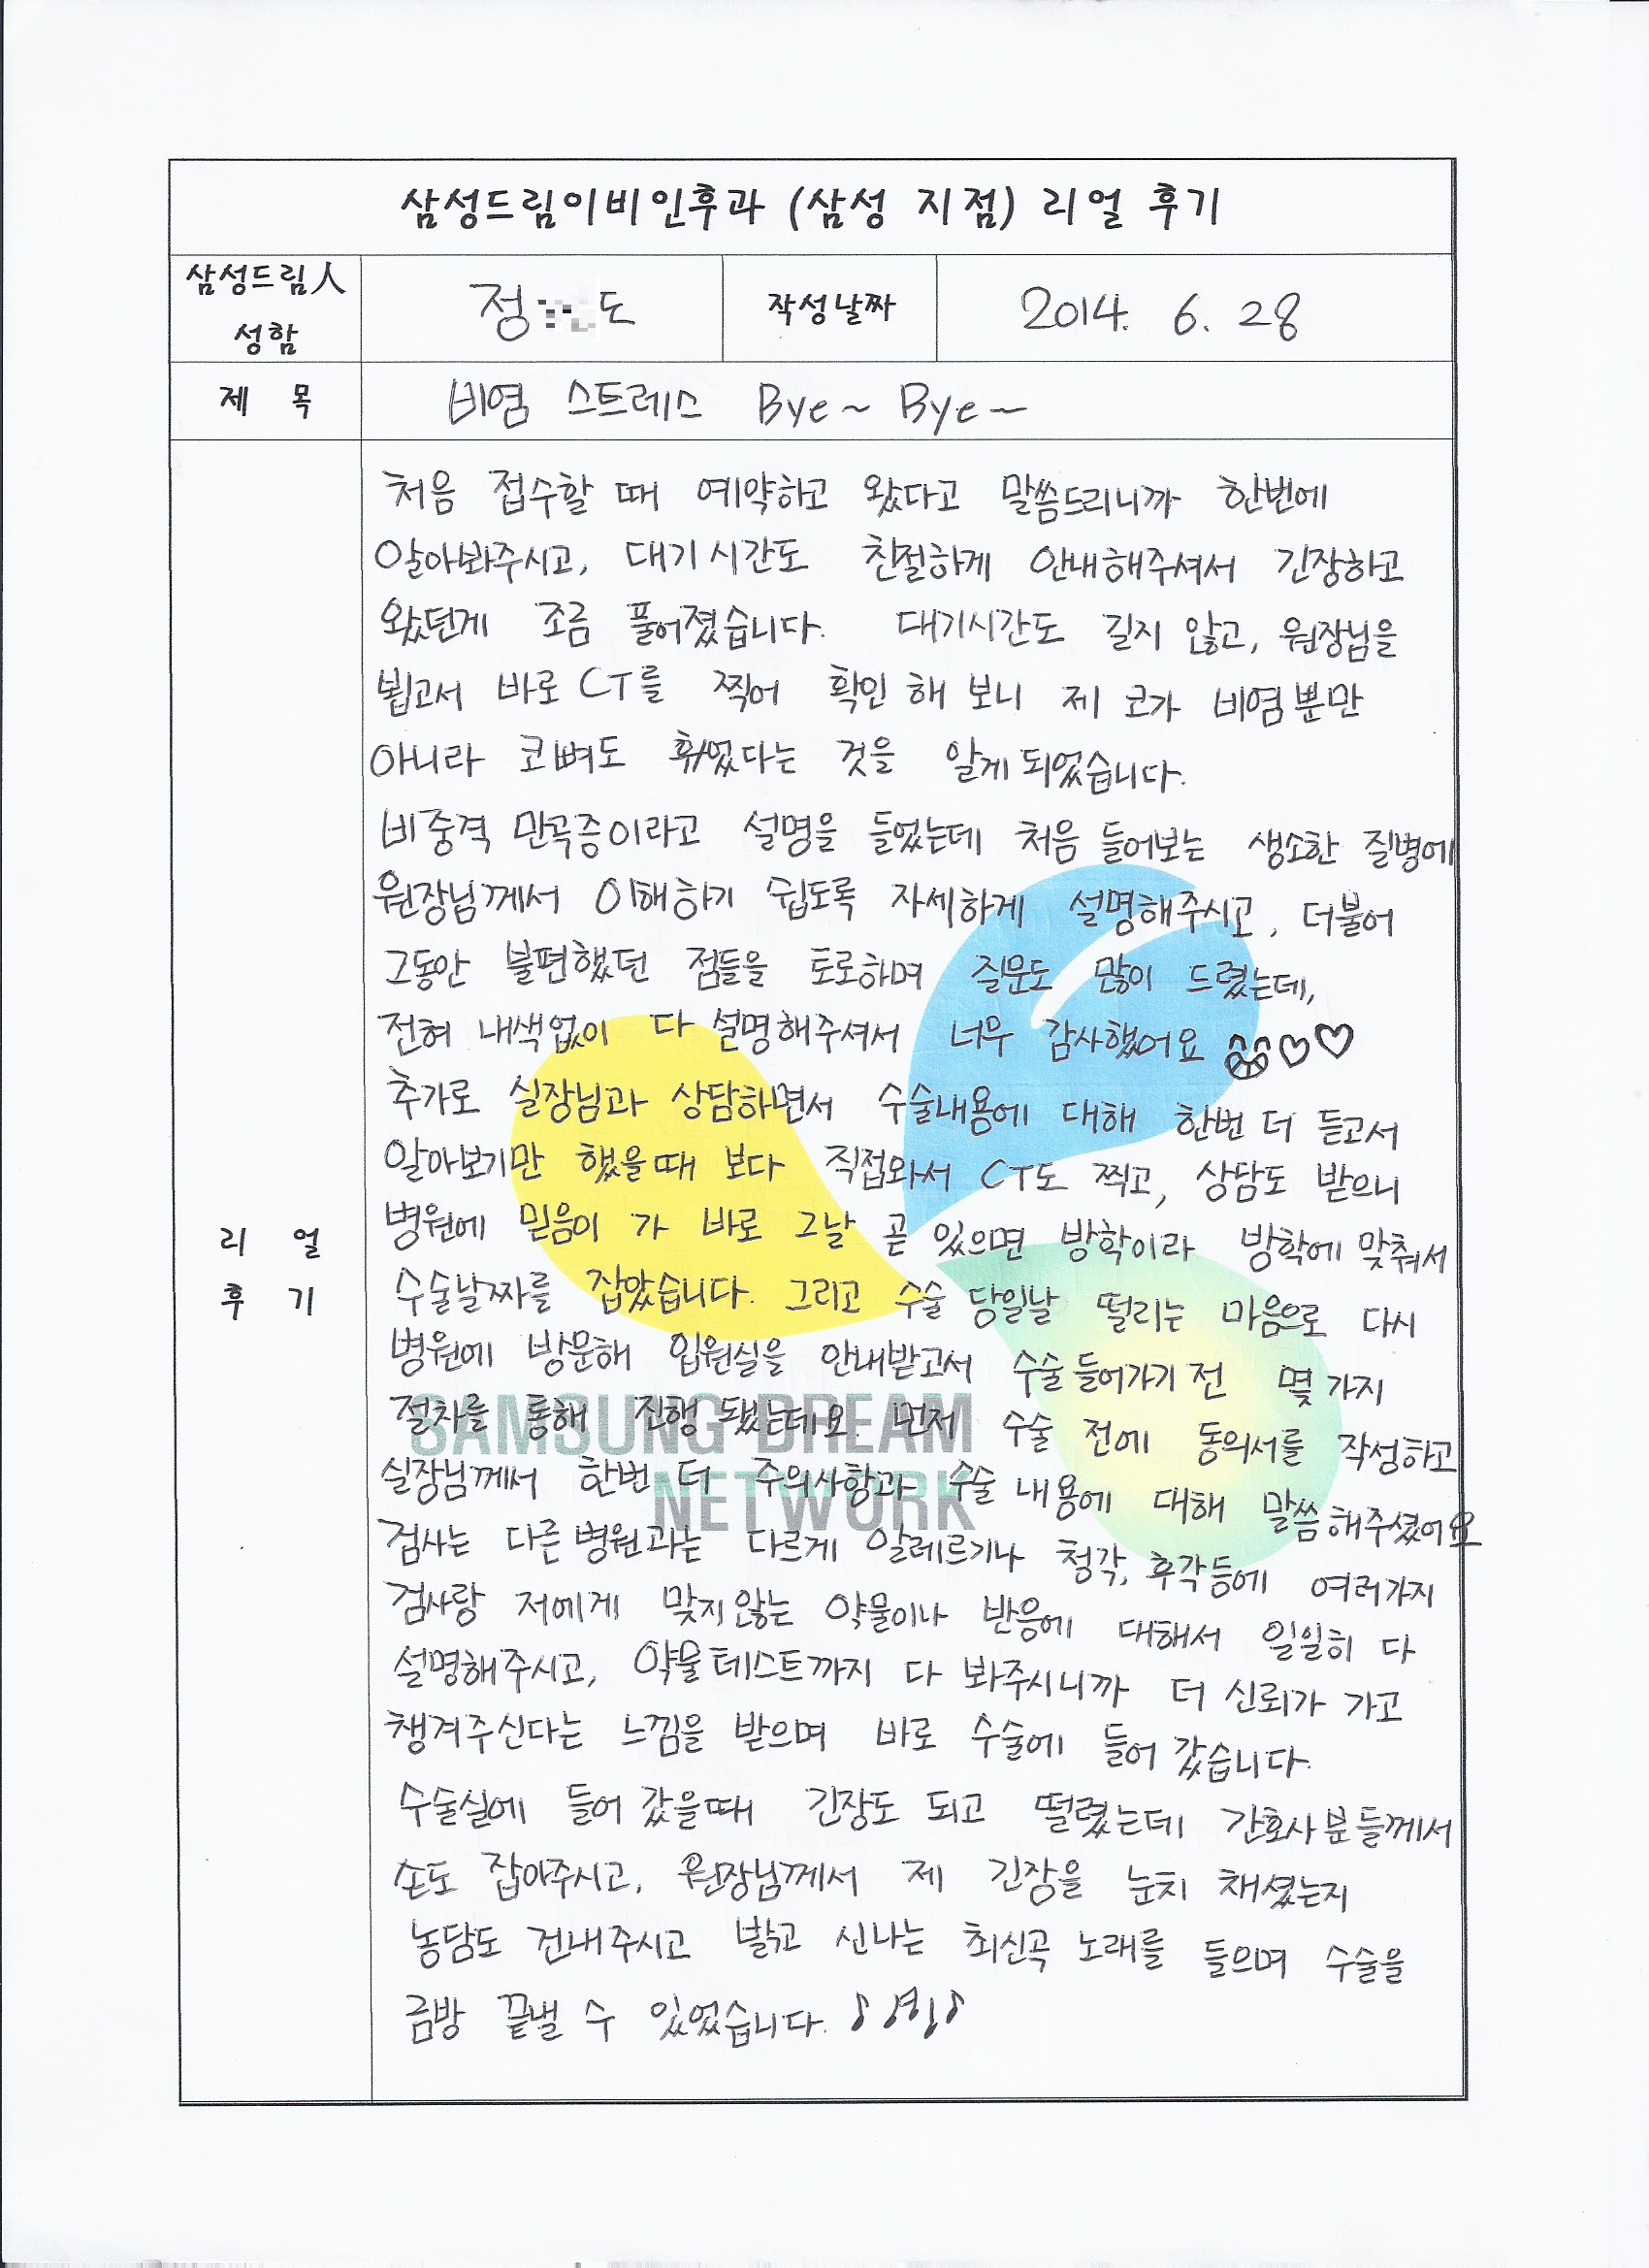 삼성드림이비인후과 (삼성 지점) 리얼 후기
삼성드림人 성함 정 도 작성날짜 2014. 6. 28
제 목 비염 스트레스 Bye~ Bye~
리 얼 후 기
처음 접수할 때 예약하고 왔다고 말씀드리니까 한번에
알아봐주시고, 대기시간도 친절하게 안내해주셔서 긴장하고
왔던게 조금 풀어졌습니다. 대기시간도 길지 않고, 원장님을
뵙고서 바로 CT를 찍어 확인 해 보니 제 코가 비염뿐만
아니라 코뼈도 휘었다는 것을 알게되었습니다.
비중격 만곡증이라고 설명을 들었는데 처음 들어보는 생소한 질병에
원장님께서 이해하기 쉽도록 자세하게 설명해주시고, 더불어
그동안 불편했던 점들을 토로하며 질문도 많이 드렸는데,
전혀 내색없이 다 설명해주셔서 너무 감사했어요 ♡♡
추가로 실장님과 상담하면서 수술내용에 대해 한번 더 듣고서
알아보기만 했을때 보다 직접와서 CT도 찍고, 상담도 받으니
병원에 믿음이 가 바로 그날 곧 있으면 방학이라 방학에 맞춰서
수술날짜를 잡았습니다. 그리고 수술 당일날 떨리는 마음으로 다시
병원에 방문해 입원실을 안내받고서 수술들어가기 전 몇 가지
절차를 통해 진행 됐는데요. 먼저 수술 전에 동의서를 작성하고
실장님께서 한번 더 주의사항과 수술 내용에 대해 말씀해주셨어요
검사는 다른병원과는 다르게 알레르기나 청각, 후각등에 여러가지
검사랑 저에게 맞지않는 약물이나 반응에 대해서 일일히 다
설명해주시고, 약물테스트까지 다 봐주시니까 더 신뢰가 가고
챙겨주신다는 느낌을 받으며 바로 수술에 들어 갔습니다.
수술실에 들어 갔을때 긴장도 되고 떨렸는데 간호사분들께서
손도 잡아주시고, 원장님께서 제 긴장을 눈치 채셨는지
농담도 건내주시고 밝고 신나는 최신곡 노래를 들으며 수술을
금방 끝낼 수 있었습니다. ♪ ♪
SAMSUNG DREAM
NETWORK